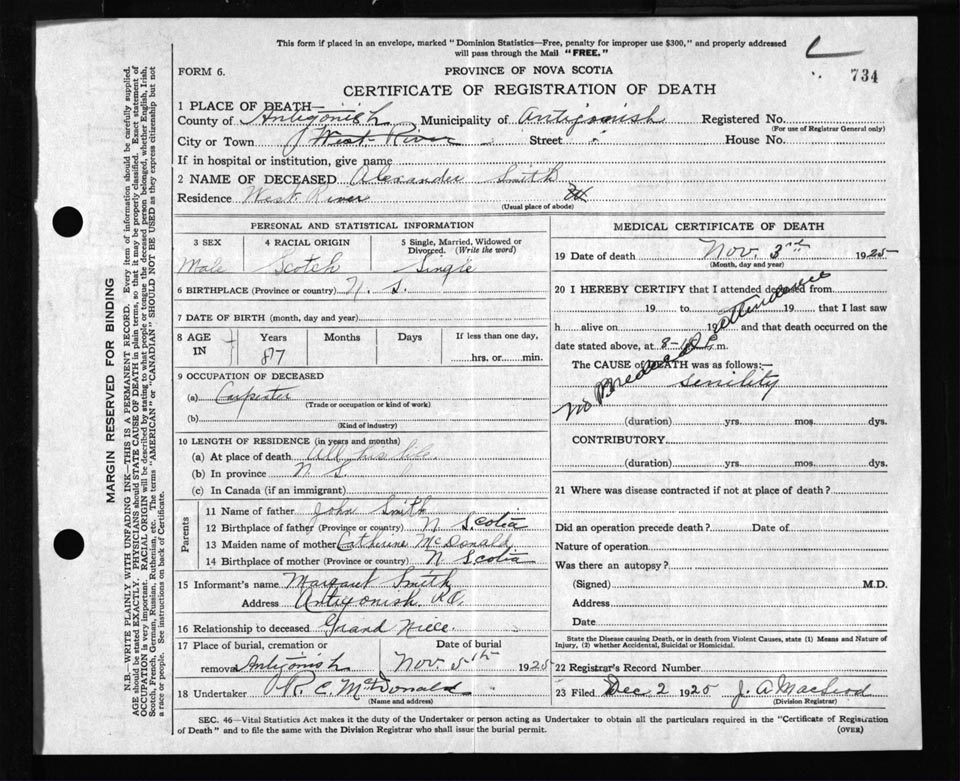 This form if placed in an envelope, marked "Dominion Statistics—Free, penalty for improper use $300," and properly addressed
will pass through the Mail "FREE."
734
FORM 6.
PROVINCE OF NOVA SCOTIA
CERTIFICATE OF REGISTRATION OF DEATH
1 PLACE OF DEATH—
County of Antigonish Municipality of Antigonish Registered No.
(For use of Registrar General only)
City or Town West River Street House No.
If in hospital or institution, give name
2 NAME OF DECEASED Alexander Smith
Residence West River
(Usual place of abode)
PERSONAL AND STATISTICAL INFORMATION
3 SEX 4 RACIAL ORIGIN 5 Single, Married, Widowed or Divorced. (Write the word)
Male Scotch Single
6 BIRTHPLACE (Province or country) N. S.
7 DATE OF BIRTH (month, day and year)
8 AGE IN Years Months Days If less than one day,
87 hrs. or min.
9 OCCUPATION OF DECEASED
(a) Carpenter
(Trade or occupation or kind of work)
(b)
(Kind of industry)
10 LENGTH OF RESIDENCE (in years and months)
(a) At place of death All his life
(b) In province N S
(c) In Canada (if an immigrant)
Parents
11 Name of father John Smith
12 Birthplace of father (Province or country) N Scotia
13 Maiden name of mother Catherine McDonald
14 Birthplace of mother (Province or country) N Scotia
15 Informant's name Margaret Smith
Address Antigonish P.O.
16 Relationship to deceased Grand Niece
17 Place of burial, cremation or removal Antigonish Date of burial Nov 5th 1925
18 Undertaker R. C. MacDonald
(Name and address)
MEDICAL CERTIFICATE OF DEATH
19 Date of death Nov. 3rd 1925
(Month, day and year)
20 I HEREBY CERTIFY that I attended deceased from
19 to 19 that I last saw
h alive on 19 and that death occurred on
date stated above, at 8- P.m.
The CAUSE of DEATH was as follows:—
Senility
No Medical attendance
(duration) yrs. mos. dys.
CONTRIBUTORY
(duration) yrs. mos. dys.
21 Where was disease contracted if not at place of death?
Did an operation precede death? Date of
Nature of operation
Was there an autopsy?
(Signed) M.D.
Address
Date
State the Disease causing Death, or in death from Violent Causes, state (1) Means and Nature of
Injury, (2) whether Accidental, Suicidal or Homicidal.
22 Registrar's Record Number
23 Filed Dec 2 1925 J. A MacLeod
(Division Registrar)
SEC. 46—Vital Statistics Act makes it the duty of the Undertaker or person acting as Undertaker to obtain all the particulars required in the "Certificate of Registration
of Death" and to file the same with the Division Registrar who shall issue the burial permit.
(OVER)
MARGIN RESERVED FOR BINDING
N.B.—WRITE PLAINLY WITH UNFADING INK—THIS IS A PERMANENT RECORD. Every item of information should be carefully supplied.
AGE should be stated EXACTLY. PHYSICIANS should STATE CAUSE OF DEATH in plain terms, so that it may be properly classified. Exact statement of
OCCUPATION is very important. RACIAL ORIGIN will be described by stating to what people or tongue the deceased person belonged, whether English, Irish,
Scotch, French, German, Russian, Ruthenian, etc. The terms "AMERICAN" or "CANADIAN" SHOULD NOT BE USED as they express citizenship but not
a race or people. See instructions on back of Certificate.